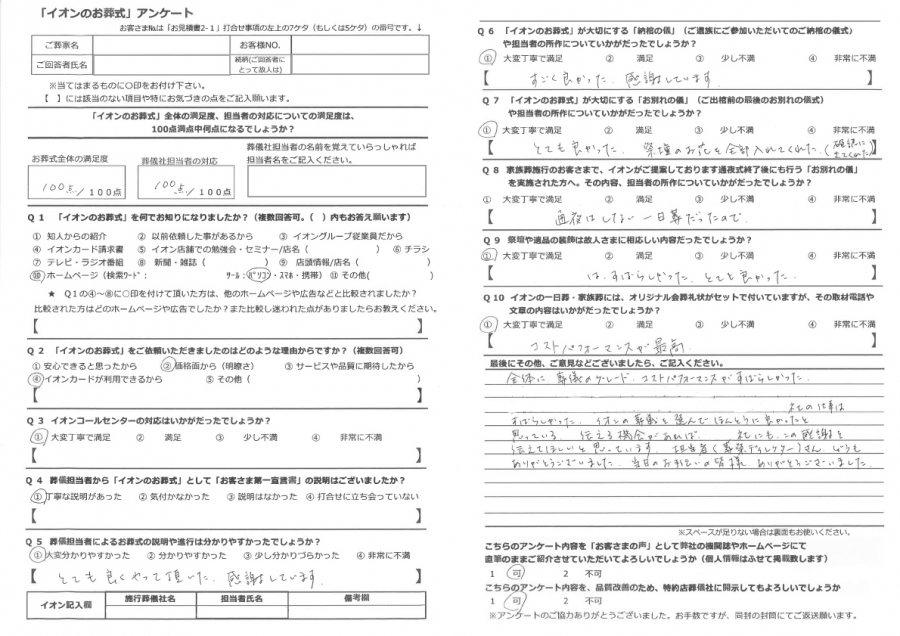 「イオンのお葬式」アンケート
お客さま№は「お見積書2-1」打合せ事項の左上の7ケタ（もしくは5ケタ）の番号です。↓
ご葬家名
お客様NO.
ご回答者氏名
続柄(ご回答者にとって故人は)
※当てはまるものに○印をお付け下さい。
【　】には該当のない項目や特にお気づきの点をご記入願います。
「イオンのお葬式」全体の満足度、担当者の対応についての満足度は、
100点満点中何点になるでしょうか？
お葬式全体の満足度
100点/100点
葬儀社担当者の対応
100点/100点
葬儀社担当者の名前を覚えていらっしゃれば
担当者名をご記入ください。
Q 1　「イオンのお葬式」を何でお知りになりましたか？（複数回答可。（　）内もお答え願います）
① 知人からの紹介　② 以前依頼した事があるから　③ イオングループ従業員だから
④ イオンカード請求書　⑤ イオン店舗での勉強会・セミナー/店名（　）　⑥ チラシ
⑦ テレビ・ラジオ番組　⑧ 新聞・雑誌（　）　⑨ 店頭情報/店名（　）
⑩ ホームページ（検索ﾜｰﾄﾞ：　ﾂｰﾙ：パソコン・ｽﾏﾎ・携帯）　⑪ その他（　）
★ Q1の④～⑧に○印を付けて頂いた方は、他のホームページや広告などと比較されましたか？
比較された方はどのホームページや広告でしたか？また比較し迷われた点がありましたらお教えください。
【　】
Q 2　「イオンのお葬式」をご依頼いただきましたのはどのような理由からですか？（複数回答可）
① 安心できると思ったから　② 価格面から（明瞭さ）　③ サービスや品質に期待したから
④ イオンカードが利用できるから　⑤ その他（　）
【　】
Q 3　イオンコールセンターの対応はいかがだったでしょうか？
① 大変丁寧で満足　② 満足　③ 少し不満　④ 非常に不満
【　】
Q 4　葬儀担当者から「イオンのお葬式」として「お客さま第一宣言書」の説明はございましたか？
① 丁寧な説明があった　② 気付かなかった　③ 説明はなかった　④ 打合せに立ち会っていない
【　】
Q 5　葬儀担当者によるお葬式の説明や進行は分かりやすかったでしょうか？
① 大変分かりやすかった　② 分かりやすかった　③ 少し分かりづらかった　④ 非常に不満
【とても良くやって頂いた。感謝しています。】
イオン記入欄
施行葬儀社名
担当者氏名
備考欄
Q 6　「イオンのお葬式」が大切にする「納棺の儀」（ご遺族にご参加いただいてのご納棺の儀式）
や担当者の所作についていかがだったでしょうか？
① 大変丁寧で満足　② 満足　③ 少し不満　④ 非常に不満
【すごく良かった。感謝しています。】
Q 7　「イオンのお葬式」が大切にする「お別れの儀」（ご出棺前の最後のお別れの儀式）
や担当者の所作についていかがだったでしょうか？
① 大変丁寧で満足　② 満足　③ 少し不満　④ 非常に不満
【とても良かった。祭壇のお花を全部入れてくれた。】
Q 8　家族葬施行のお客さまで、イオンがご提案しております通夜式終了後にも行う「お別れの儀」
を実施された方へ。その内容、担当者の所作についていかがだったでしょうか？
① 大変丁寧で満足　② 満足　③ 少し不満　④ 非常に不満
【通夜はしない一日葬だったので。】
Q 9　祭壇や遺品の装飾は故人さまに相応しい内容だったでしょうか？
① 大変丁寧で満足　② 満足　③ 少し不満　④ 非常に不満
【は、すばらしかった。とても良かった。】
Q 10　イオンの一日葬・家族葬には、オリジナル会葬礼状がセットで付いていますが、その取材電話や
文章の内容はいかがだったでしょうか？
① 大変丁寧で満足　② 満足　③ 少し不満　④ 非常に不満
【コストパフォーマンスが最高】
最後にその他、ご意見などございましたら、ご記入ください。
全体に、葬儀のグレード、コストパフォーマンスがすばらしかった。
社の仕事は
すばらしかった。イオンの葬儀を選んでほんとうに良かったと
思っている。伝える機会があれば　社にも、この感謝を
伝えてほしいと思っています。担当者（葬祭ディレクター）さん、どうも
ありがとうございました。当日のお手伝いの皆様、ありがとうございました。
※スペースが足りない場合は裏面もお使いください。
こちらのアンケート内容を「お客さまの声」として弊社の機関誌やホームページにて
直筆のままご紹介させていただいてよろしいでしょうか（個人情報はふせて掲載致します）
1　可　2　不可
こちらのアンケート内容を、品質改善のため、特約店葬儀社に開示してもよろしいでしょうか
1　可　2　不可
※アンケートのご協力ありがとうございました。お手数ですが、同封の封筒にてご返送願います。